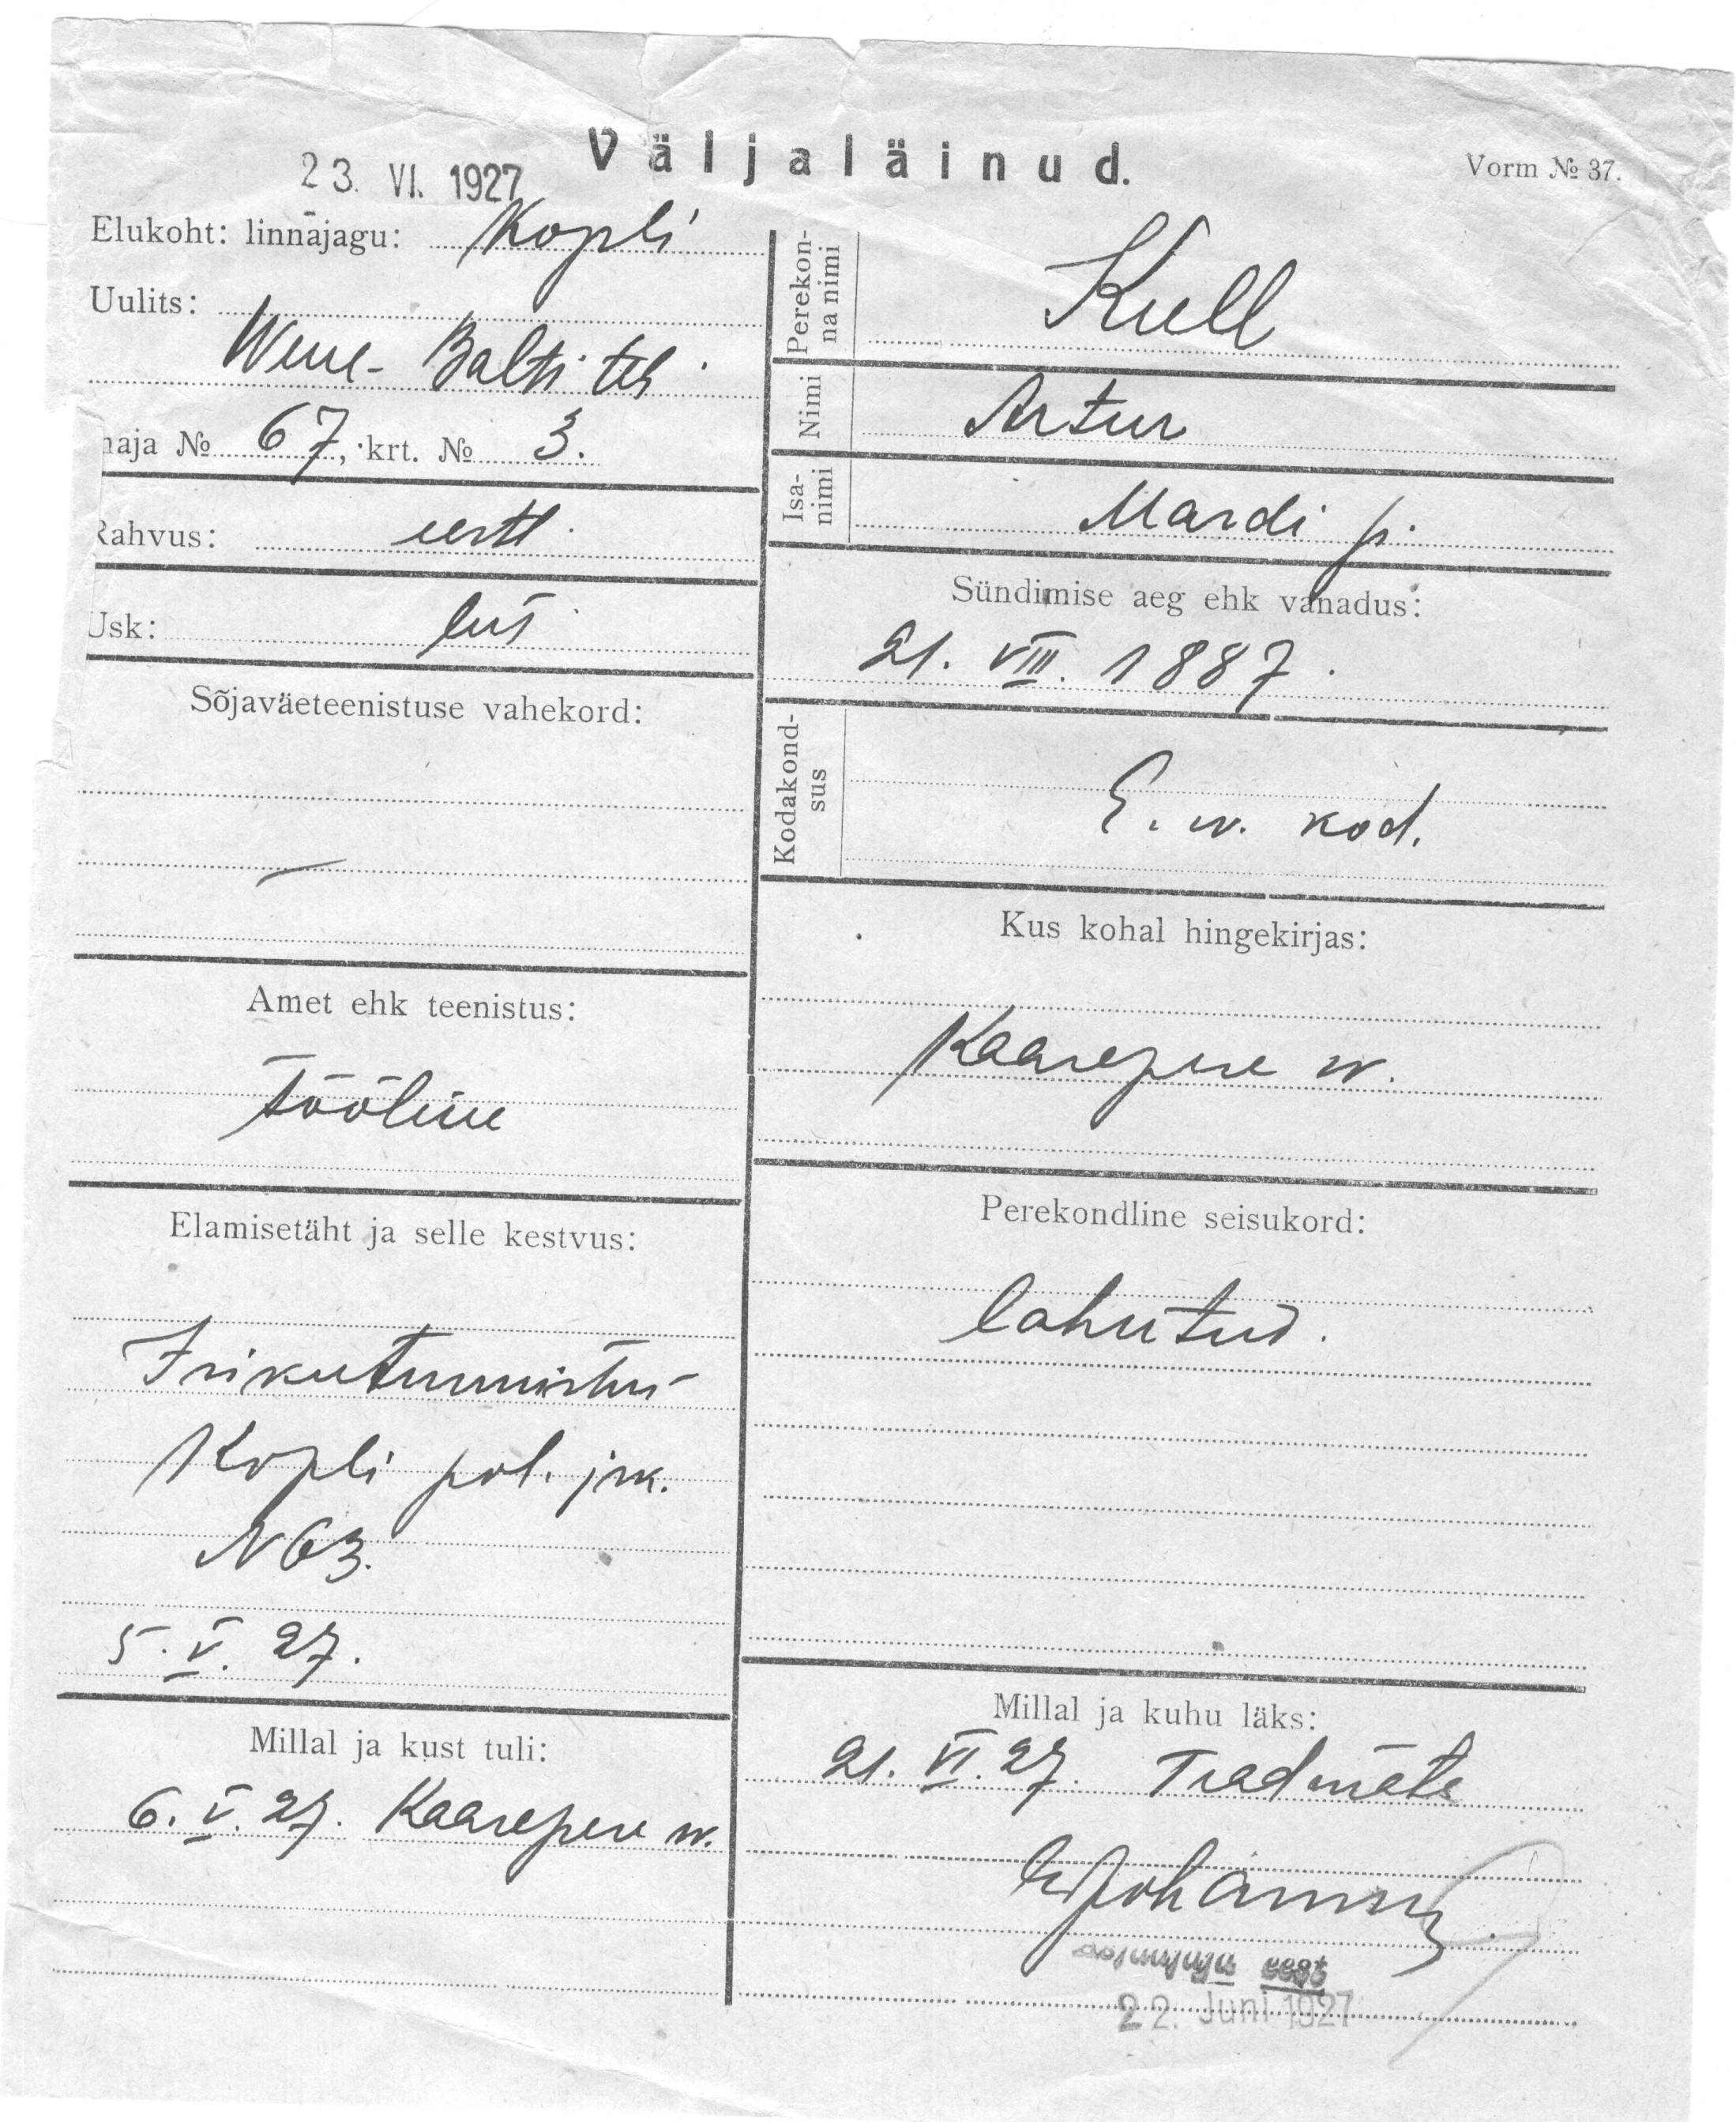 Väljaläinud.
23. VI. 1927
Vorm № 37.
Elukoht: linnajagu: Kopli
Uulits:
Wene-Balti teh.
maja № 67, krt. № 3.
Rahvus: eestl.
Usk: lut.
Sõjaväeteenistuse vahekord:
—
Amet ehk teenistus:
tööline
Elamisetäht ja selle kestvus:
Isikutunnistus
Kopli pol. jsk.
N 63.
5. V. 27.
Millal ja kust tuli:
6. V. 27. Kaarepere w.
Perekon-
na nimi
Kull
Nimi
Artur
Isa-
nimi
Mardi p.
Sündimise aeg ehk vanadus:
21. VIII. 1887.
Kodakond-
sus
E. w. kod.
Kus kohal hingekirjas:
Kaarepere w.
Perekondline seisukord:
lahutud.
Millal ja kuhu läks:
21. VI. 27. Teadmata
22. Juni 1927